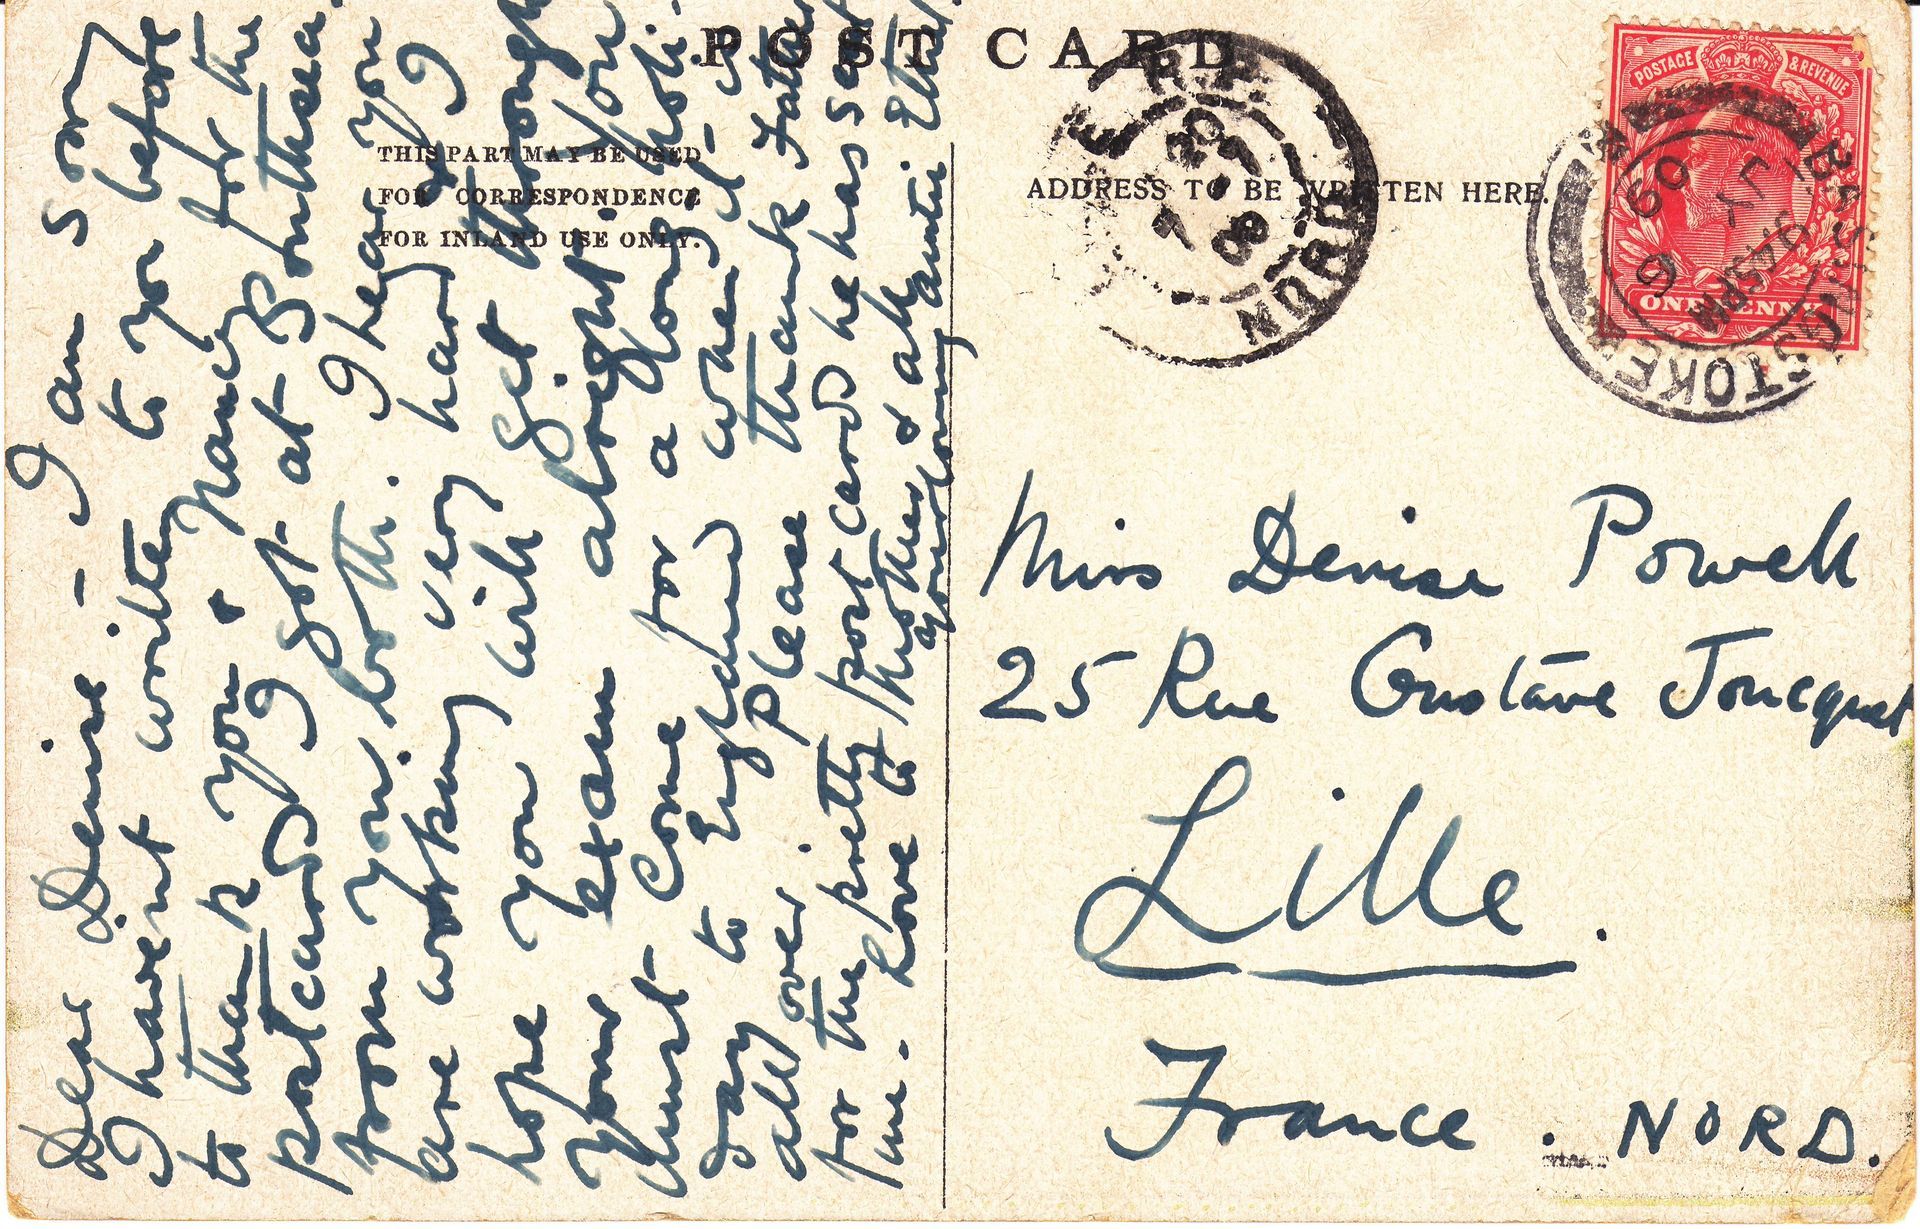 POST CARD
THIS PART MAY BE USED
FOR CORRESPONDENCE
FOR INLAND USE ONLY.
ADDRESS TO BE WRITTEN HERE.
POSTAGE & REVENUE
ONE PENNY
9.45 PM
JY 6
09
NORD
Dear Denise – I am sorry
I havent written to you before
to thank you & Nancy for the
postcards I got at Southsea
from you both. I hear you
are working very hard & I
hope you will get through
your exam alright. You
must come for a long holi-
day to England when it is
all over. Please thank Father
for the pretty post cards he has sent
me. Love to Mother & all
your loving auntie Ethel.
Miss Denise Powell
25 Rue Gustave Joncquet
Lille.
France. NORD.